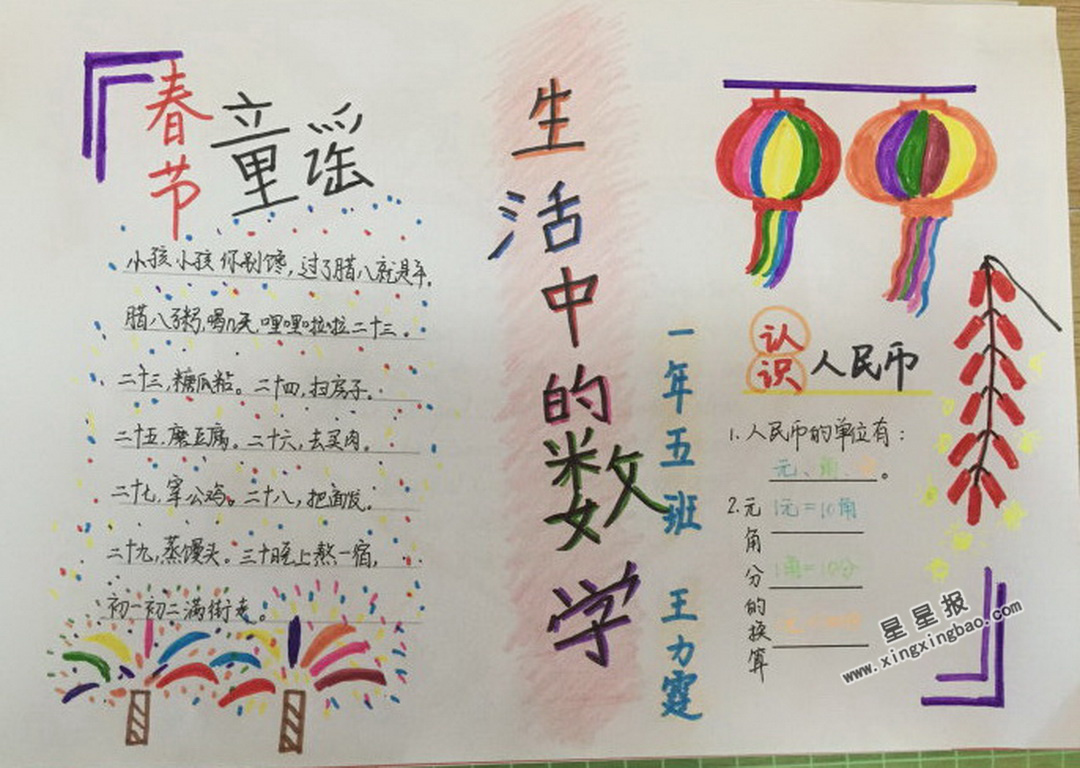 春节童谣
小孩小孩你别馋，过了腊八就是年。
腊八粥，喝几天，哩哩啦啦二十三。
二十三，糖瓜粘。二十四，扫房子。
二十五，磨豆腐。二十六，去买肉。
二十七，宰公鸡。二十八，把面发。
二十九，蒸馒头。三十晚上熬一宿，
初一初二满街走。
生活中的数学
一年五班 王力霆
认识人民币
1.人民币的单位有：
元、角、分。
2.元角分的换算
1元=10角
1角=10分
星星报
www.xingxingbao.com